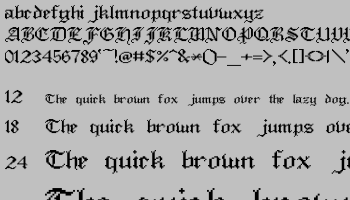 abcdefghi jklmnopqrstuvwxyz
ABCDEFGHIJKLMNOPQRSTUVWXYZ
0123456789'~!@#$%^&*()-_+=>,<.[]{}|\
12 The quick brown fox jumps over the lazy dog.
18 The quick brown fox jumps ove
24 The quick brown fox
The quick brown